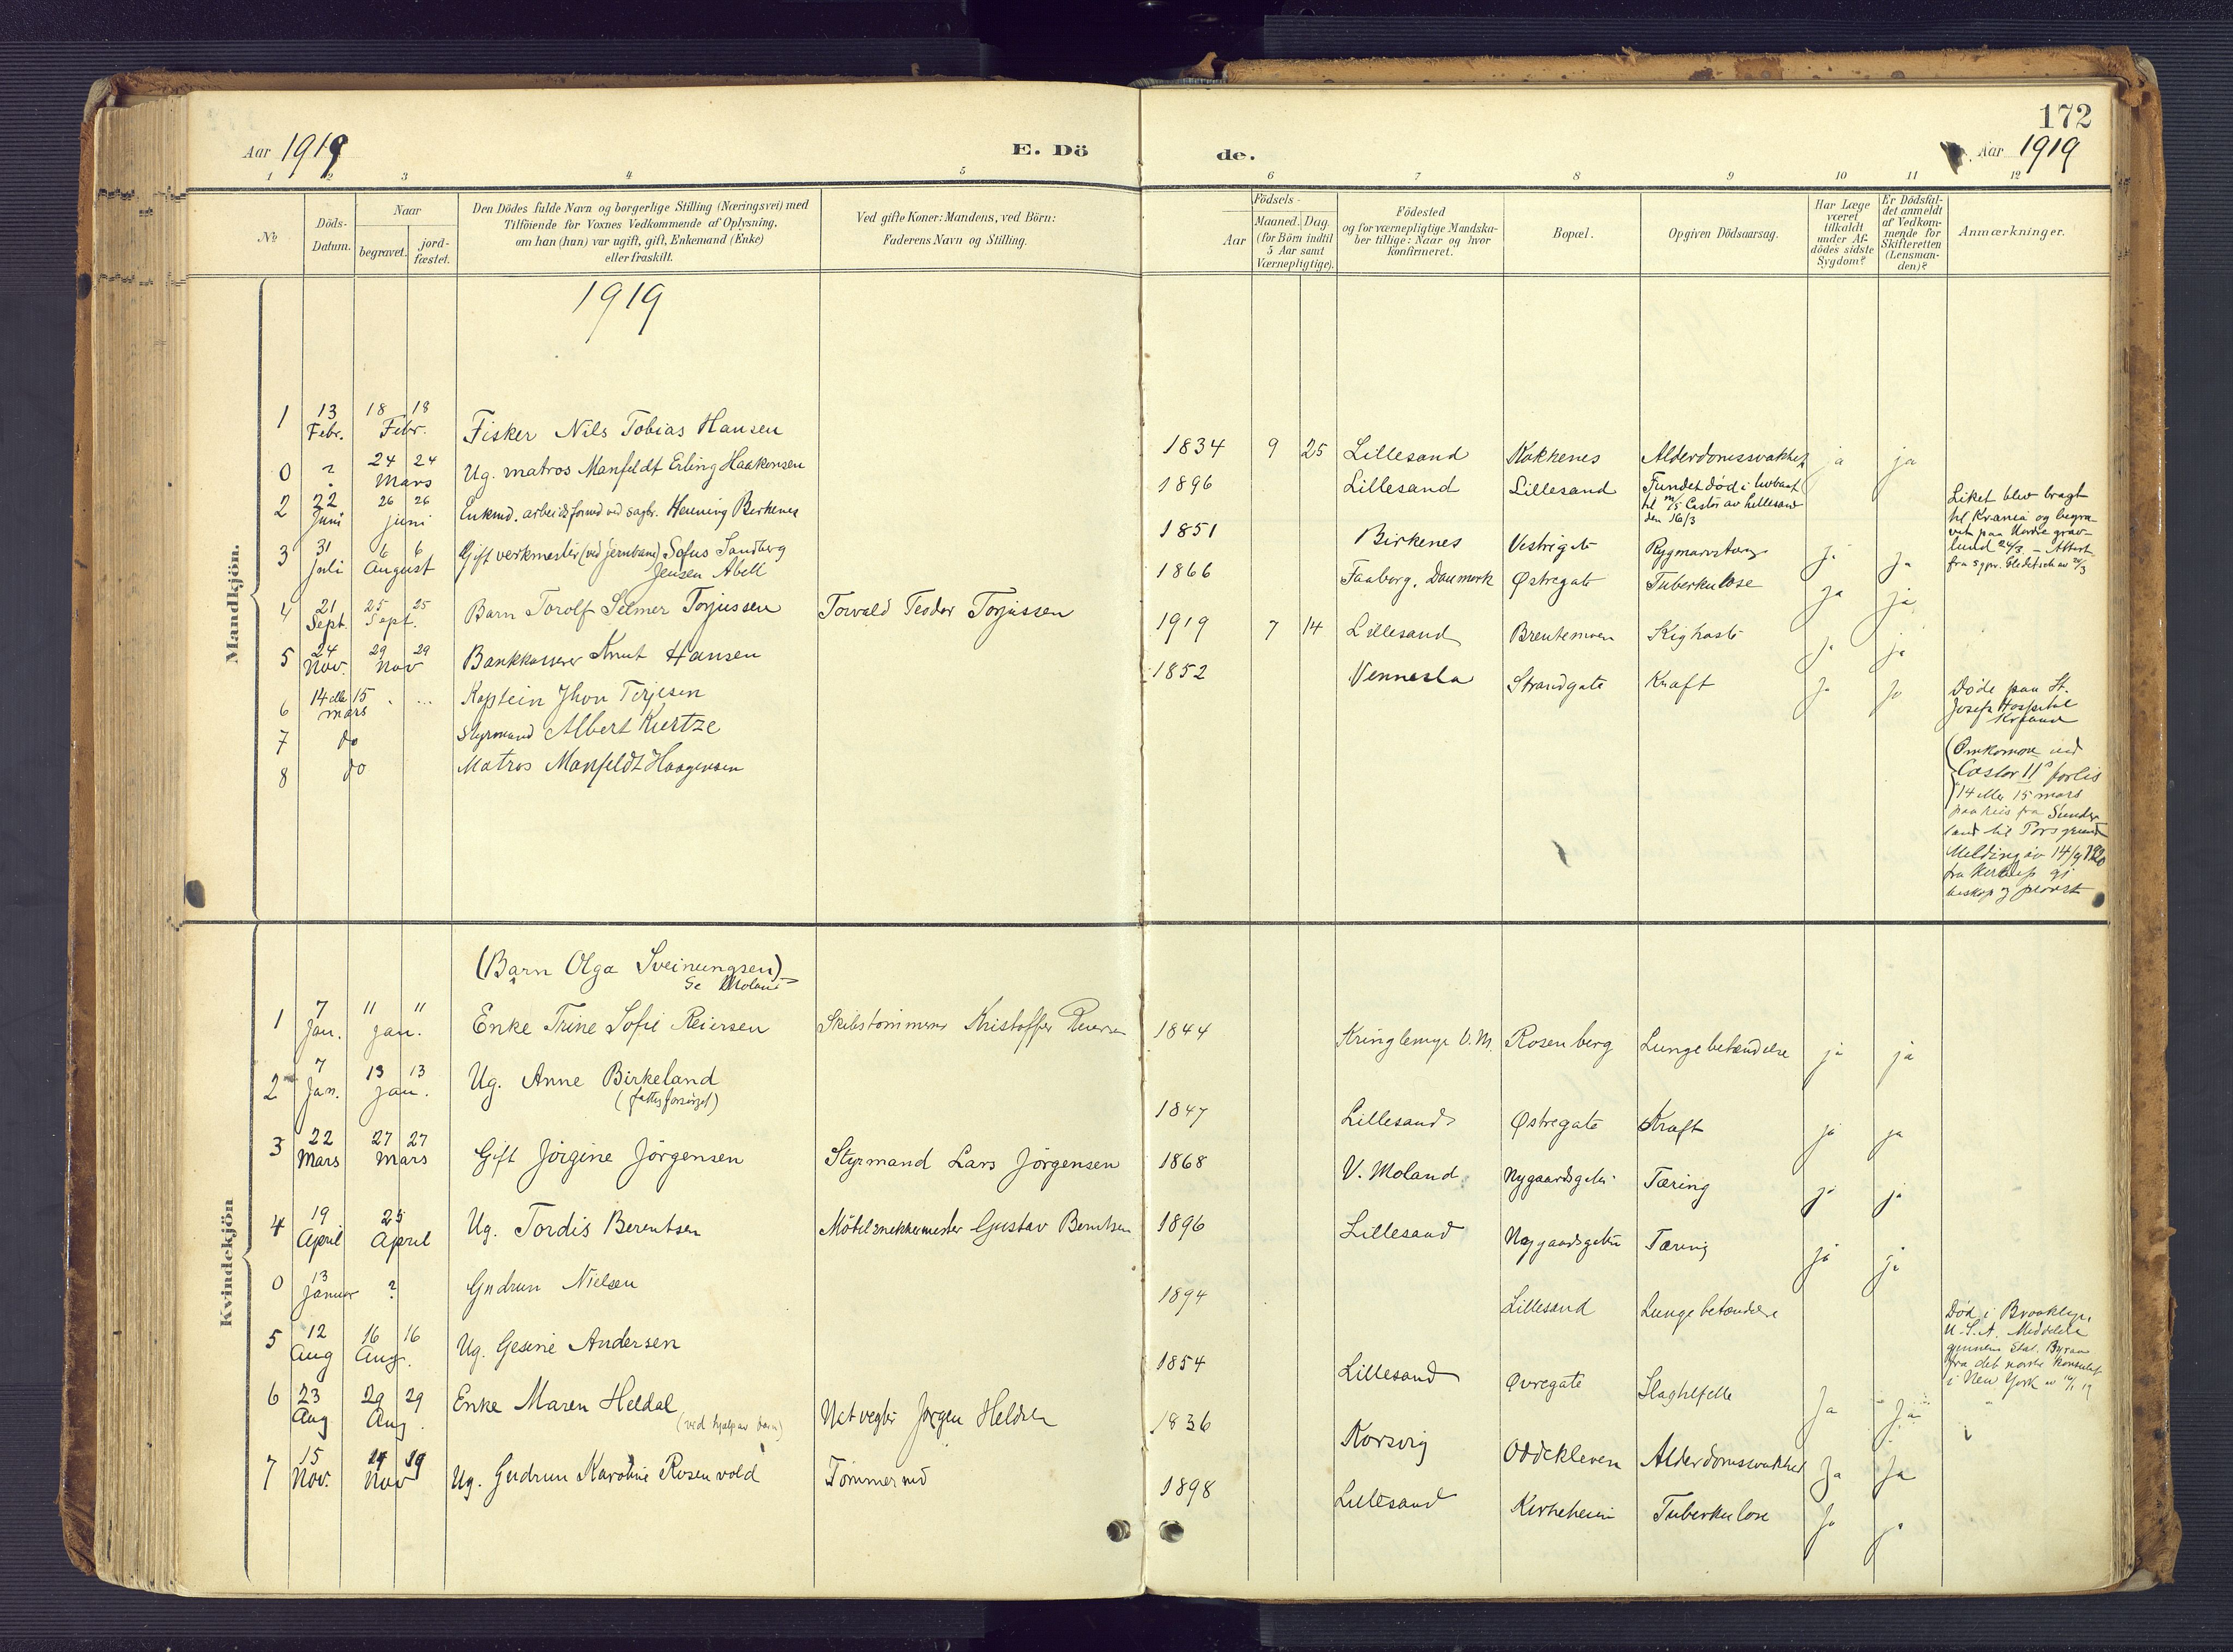 172
Aar 1919
E. Dö
de.
Aar 1919
1 2 3 4 5
6 7 8 9 10 11 12
No
Döds-
Datum.
Naar
begravet.
jord-
fæstet.
Den Dödes fulde Navn og borgerlige Stilling (Næringsvei) med
Tilföiende for Voxnes Vedkommende af Oplysning,
om han (hun) var ugift, gift, Enkemand (Enke)
eller fraskilt.
Ved gifte Koner: Mandens, ved Börn:
Faderens Navn og Stilling.
Födsels-
Aar
Maaned. Dag.
(for Börn indtil
5 Aar samt
Værnepligtige).
Födested
og for værnepligtige Mandska-
ber tillige: Naar og hvor
konfirmeret.
Bopæl.
Opgiven Dödsaarsag.
Har Læge
været
tilkaldt
under Af-
dödes sidste
Sygdom?
Er Dödsfal-
det anmeldt
af Vedkom-
mende for
Skifteretten
(Lensman-
den)?
Anmærkninger.
1919
Mandkjön.
1 13 Febr. 18 18 Febr. Fisker Nils Tobias Hansen 1834 9 25 Lillesand Kokkenes Alderdomssvakhet ja ja
0 ? 24 24 Mars Ug. matros Manfeldt Erling Haakonsen 1896 Lillesand Lillesand Fundet død i livbaat
til m/s Castor av Lillesand
den 16/3
Liket blev bragt
til Kr.ania og begra-
vet paa Nordre grav-
lund 24/3 - Attest
fra sgpr. Gleditsch av
2 22 Juni 26 26 juni Enkmd. arbeidsformd ved sagbr. Henning Birkenes 1851 Birkenes Vestregate Rygmarvstæring ja ja
3 31 Juli 6 6 August Gift verkmester (ved jernbane) Sofus Sandberg
Jensen Abell 1866 Faaborg, Danmark Østregate Tuberkulose ja ja
4 21 Sept. 25 25 Sept. Barn Torolf Selmer Torjussen Torvald Teodor Torjussen 1919 7 14 Lillesand Brentemoen Kighoste ja ja
5 24 Nov. 29 29 Nov Bankkasserer Knut Hansen 1852 Vennesla Strandgate Kraft ja ja
Døde paa St.
Josefs Hospital
Krsand
6 14 eller 15 mars Kaptein Jhon Terjesen
7 do Styrmand Albert Kurtze
8 do Matros Manfeldt Haagensen
(Omkomne ved
Castor II's forlis
14 eller 15 mars
paa reis fra Sunder
land til Porsgrund
Melding av 14/9 1920
fra
biskop og provst
Kvindekjön
(Barn Olga Sveinungsen)
Se Moland
1 7 Jan. 11 11 jan. Enke Trine Sofie Reiersen Skibstömmerm Kristoffer Reiersen 1844 Kringlemyr V. M. Rosenberg Lungebetændelse ja ja
2 7 Jan. 13 13 jan. Ug. Anne Birkeland
(fattigforsörget) 1847 Lillesand Østregate Kraft ja ja
3 22 Mars 27 27 Mars Gift Jörgine Jörgensen Styrmand Lars Jörgensen 1868 V. Moland Nygaardsgaten Tæring ja ja
4 19 April 25 April Ug. Tordis Berentsen Möbelsnekkermester Gustav Berntsen 1896 Lillesand Nygaardsgaten Tæring ja ja
0 13 Januar ? Gudrun Nielsen 1894 Lillesand Lungebetændelse
Död i Brooklyn,
U.S.A. Meddelt
gjennem Stat. Byraa
fra det norske konsulat
i New York
5 12 Aug 16 16 Aug. Ug. Gesine Andersen 1854 Lillesand Øvregate Slagtilfælle Ja Ja
6 23 Aug 29 29 Aug. Enke Maren Heldal
(ved hjælp av barn) Natvegter Jørgen Heldal 1836 Korsvig Oddekleven Alderdomssvakhet Ja Ja
7 15 Nov. 19 19 Nov Ug. Gudrun Karoline Rosenvold Tömmermd 1898 Lillesand Kirkeheia Tuberkulose Ja ja